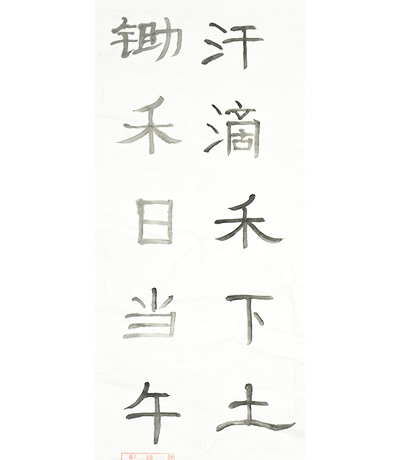 锄禾日当午
汗滴禾下土